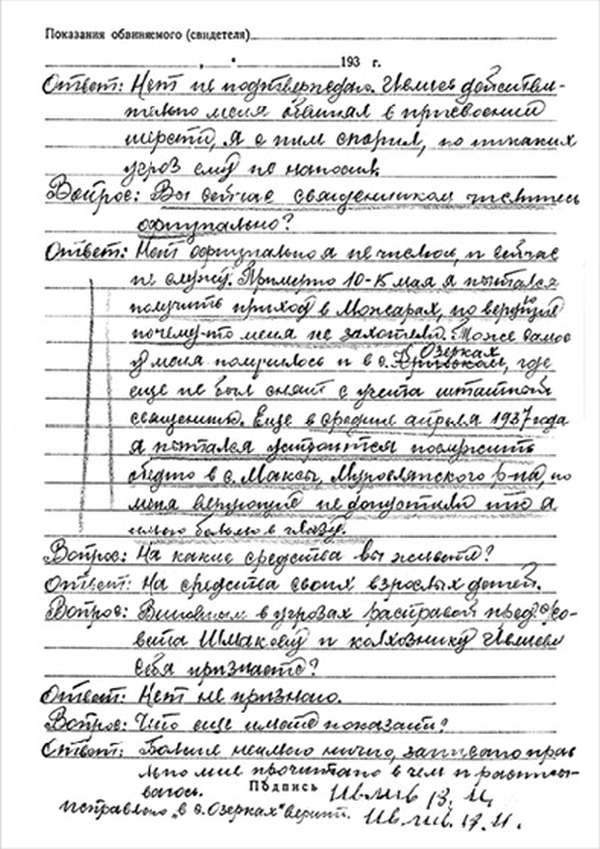 Показания обвиняемого (свидетеля)
" " 193 г.
Ответ: Нет не подтверждаю. Ивлиев действи-
тельно меня обвинял в присвоении
шерсти, я с ним спорил, но никаких
угроз ему не наносил.
Вопрос: Вы сейчас священником числитесь
официально?
Ответ: Нет официально я не числюсь, и сейчас
не служу. Примерно 10-15 мая я пытался
получить приход в Можарах, но верующие
почему-то меня не захотели. Тоже самое
у меня получилось и в с. Озерках, где
еще не был снят с учета штатный
священник. Еще в средине апреля 1937 года
я пытался устроится послужить
обедню в с. Максы, Муровлянского р-на, но
меня верующие не допустили что я
имею бельмо в глазу.
Вопрос: На какие средства вы живете?
Ответ: На средства своих взрослых детей.
Вопрос: Виновным в угрозах расправой пред с/со-
вета Шмакову и колхознику Ивлиеву
себя признаете?
Ответ: Нет не признаю.
Вопрос: Что еще имеете показать?
Ответ: Больше неимею ничего, записано прав
льно мне прочитано в чем и расписы-
ваюсь. Подпись
исправлено "в с. Озерках" верить.